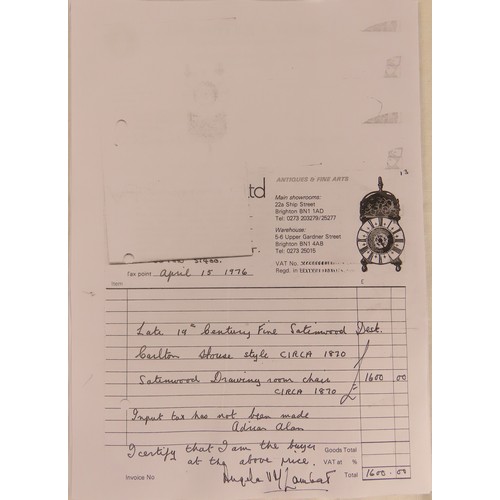 13
ANTIQUES & FINE ARTS
td
Main showrooms:
22a Ship Street
Brighton BN1 1AD
Tel: 0273 203279/25277
Warehouse:
5-6 Upper Gardner Street
Brighton BN1 4AB
Tel: 0273 25015
VAT No.
Regd. in
Tax point April 15 1976
Item £
Late 19th Century Fine Satenwood Desk.
Carlton House style CIRCA 1870
Satenwood Drawing room chair 1600 00
CIRCA 1870 £
Input tax has not been made
Adrian Alan
I certify that I am the buyer Goods Total
at the above price. VAT at %
Invoice No Angela Lambert Total 1600-00